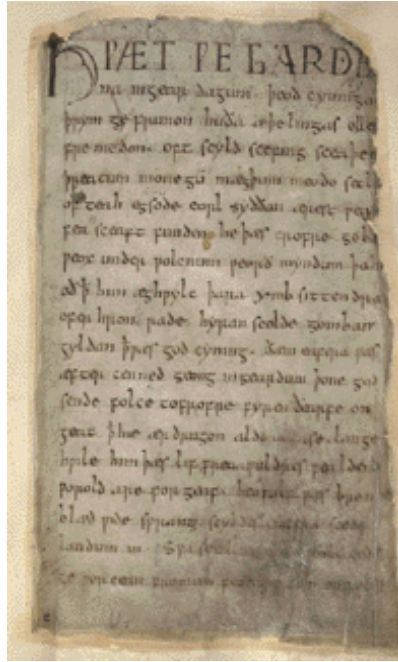 HǷÆT ǷE GARDE
na ingear dagum. þeod cyninga
þrym ge frunon huða æþelingas elle
fre medon. oft scyld scefing sceaþe
þreatum monegū mægþum meodo setl
of teah egsode eorl syððan ærest ƿear
fea sceaft funden he þæs frofre geba
ƿeox under ƿolcnum ƿeorð myndum þah
oð ꝥ him æghƿylc þara ymb sittendra
ofer hron rade hyran scolde gomban
gyldan ꝥ ƿæs god cyning. ðæm eafera ƿæs
æfter cenned geong ingeardum þone god
sende folce tofrofre fyren ðearfe on
geat ꝥ hie ær drugon aldor ase. lange
hƿile him þæs lif frea ƿuldres ƿealdend
ƿorold are for geaf. beoƿulf ƿæs breme
blæd ƿide sprang scyldes eafera scede
landum in. Sƿa sceal